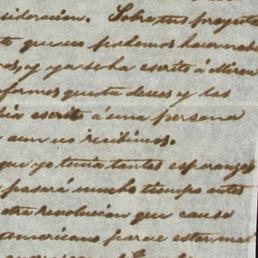 sideracion. Sobre tus proyectos
to que no podemos hacer nada
ros, y ya se ha escrito á
formes que tu deseas y las
bia escrito á una persona
aun no recibimos.
que yo tenia tantas esperanzas
pasará mucho tiempo antes
otra resolucion que cause
americano parece estar mal